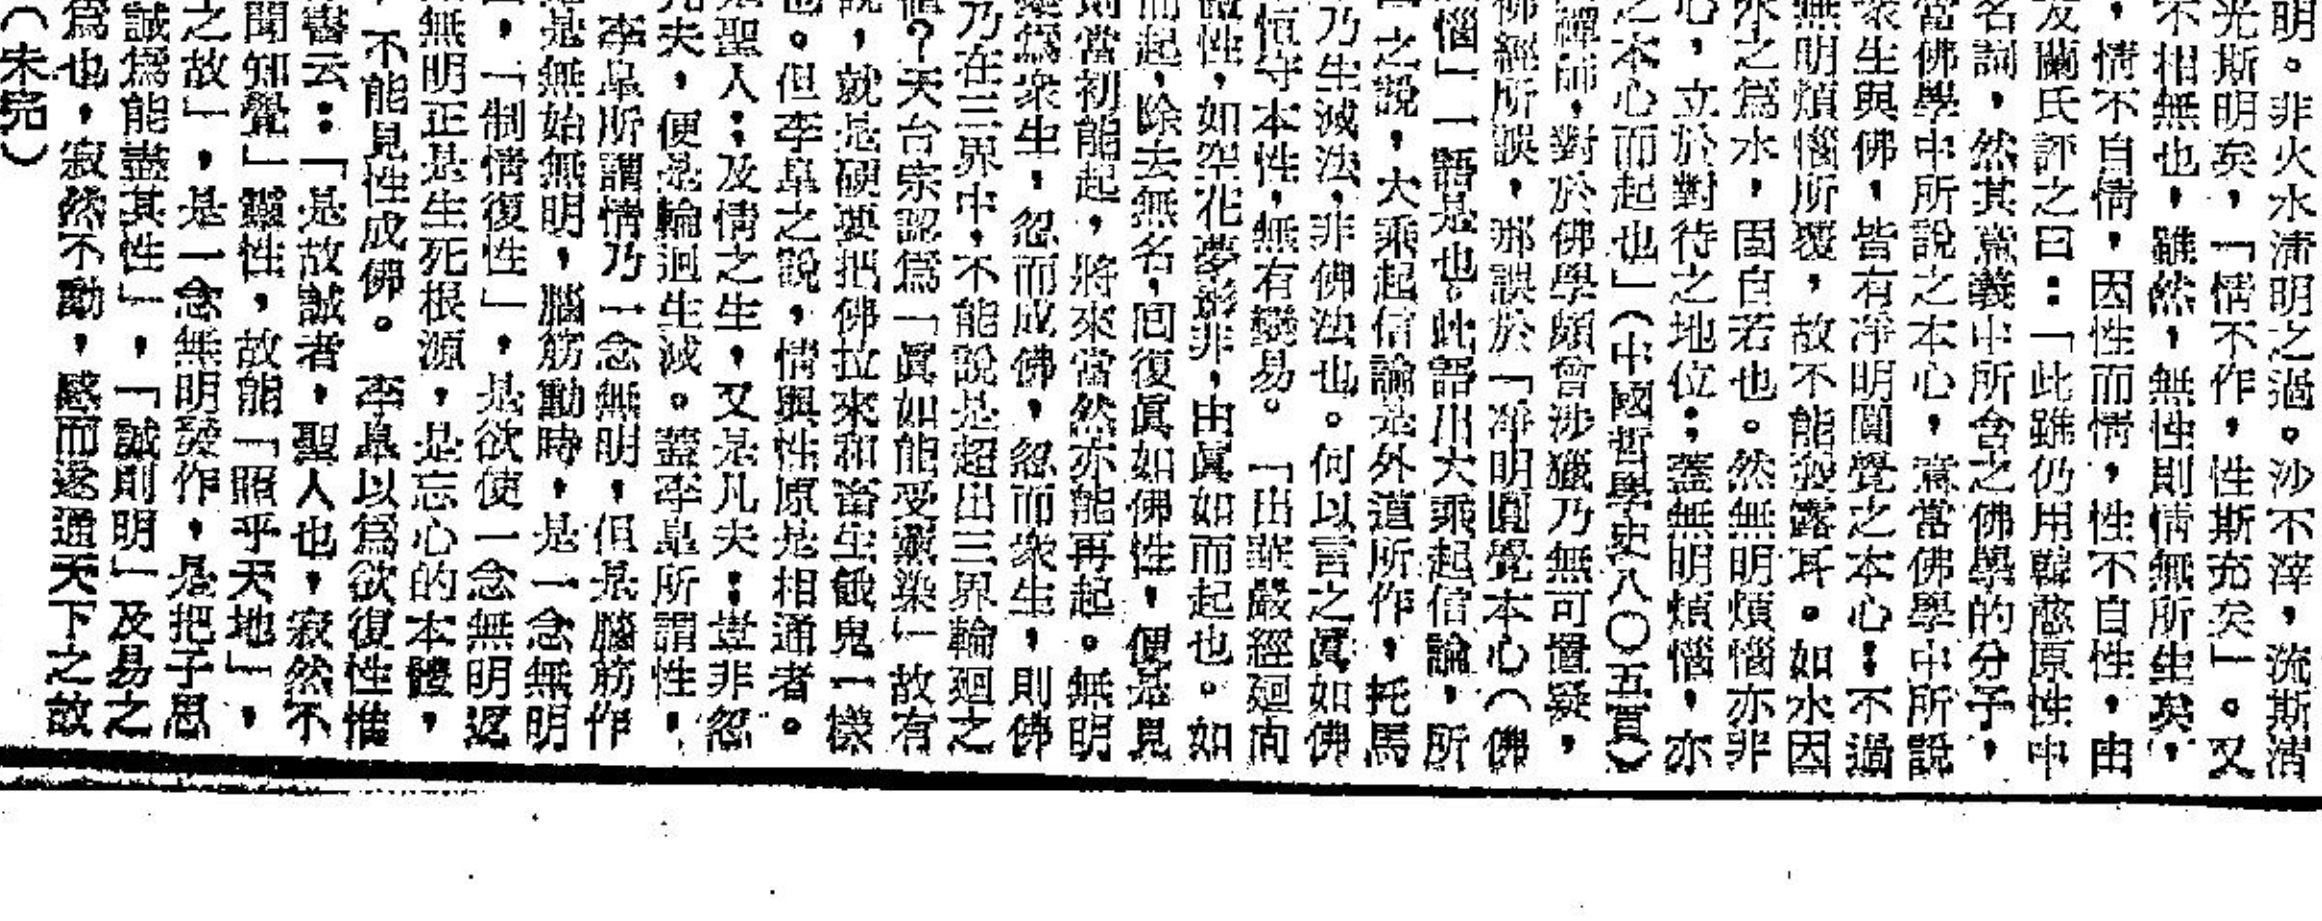 明。非火水清明之過。沙不渾，流斯清
光斯明矣，「情不作，性斯充矣」。又
不相無也，雖然，無性則情無所生矣，
，情不自情，因性而情，性不自性，由
友蘭氏評之曰：「此雖仍用韓愈原性中
名詞，然其意義中所含之佛學的分子，
當佛學中所說之本心，意當佛學中所說
衆生與佛，皆有淨明圓覺之本心：不過
無明煩惱所覆，故不能發露耳。如水因
水之爲水，固自若也。然無明煩惱亦非
心，立於對待之地位：蓋無明煩惱，亦
之本心而起也」（中國哲學史八〇五頁）
禪師，對於佛學頗曾涉獵乃無可置疑，
佛經所誤，那誤於「淨明圓覺本心（佛
惱」一語是也。此語出大乘起信論，所
之說，大乘起信論是外道所作，托馬
乃生滅法，非佛法也。何以言之眞如佛
恒守本性，無有變易。「出華嚴經迴向
性，如空花夢影非，由眞如而起也。如
而起，除去無名，回復眞如佛性，便是見
則當初能起，將來當然亦能再起。無明
爲衆生，忽而成佛，忽而衆生，則佛
乃在三界中，不能說是超出三界輪廻之
？天台宗認爲「眞如能受薰染」故有
說，就是硬要把佛拉來和畜生餓鬼一樣
也。但李臯之說，情與性原是相通者。
是聖人：及情之生，又是凡夫：豈非忽
凡夫，便是輪迴生滅。蓋李臯所謂性，
李臯所謂情乃一念無明，但是腦筋作
是無始無明，腦筋動時，是一念無明
，「制情復性」，是欲使一念無明返
無明正是生死根源，是忘心的本體，
，不能見性成佛。李臯以爲欲復性惟
書云：「是故誠者，聖人也，寂然不
聞知覺」靈性，故能「照乎天地」，
之故」，是一念無明發作，是把子思
誠爲能盡其性」，「誠則明」及易之
爲也，寂然不動，感而遂通天下之故
（未完）